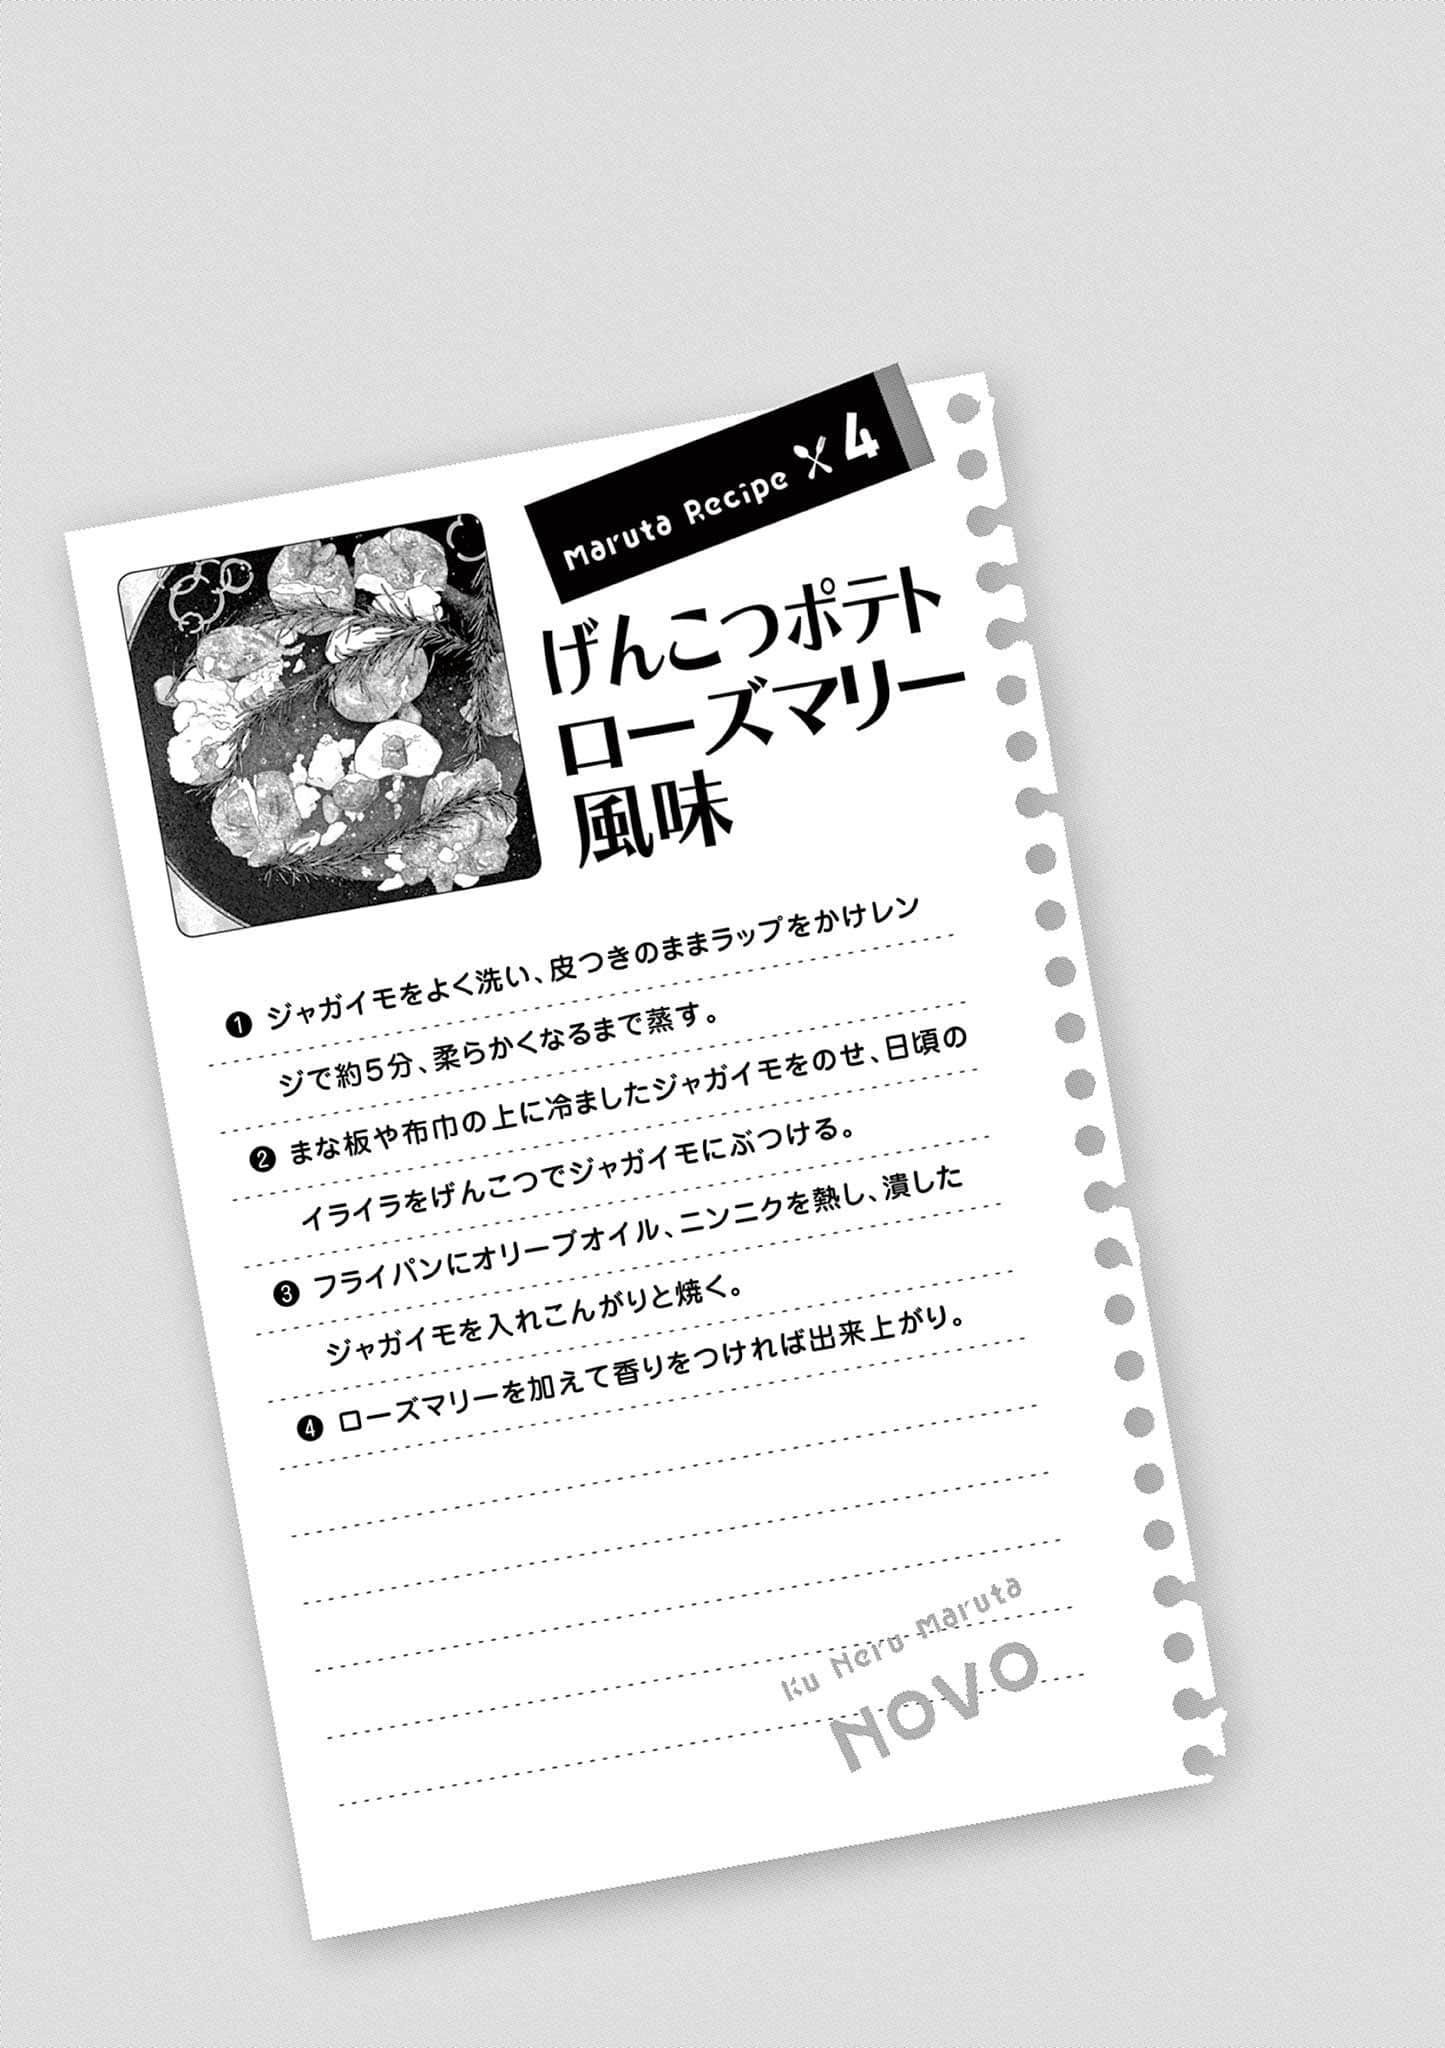 Maruta Recipe 4
げんこつポテト
ローズマリー
風味
❶ ジャガイモをよく洗い、皮つきのままラップをかけレン
ジで約5分、柔らかくなるまで蒸す。
❷ まな板や布巾の上に冷ましたジャガイモをのせ、日頃の
イライラをげんこつでジャガイモにぶつける。
❸ フライパンにオリーブオイル、ニンニクを熱し、潰した
ジャガイモを入れこんがりと焼く。
❹ ローズマリーを加えて香りをつければ出来上がり。
Ku Neru Maruta
NOVO